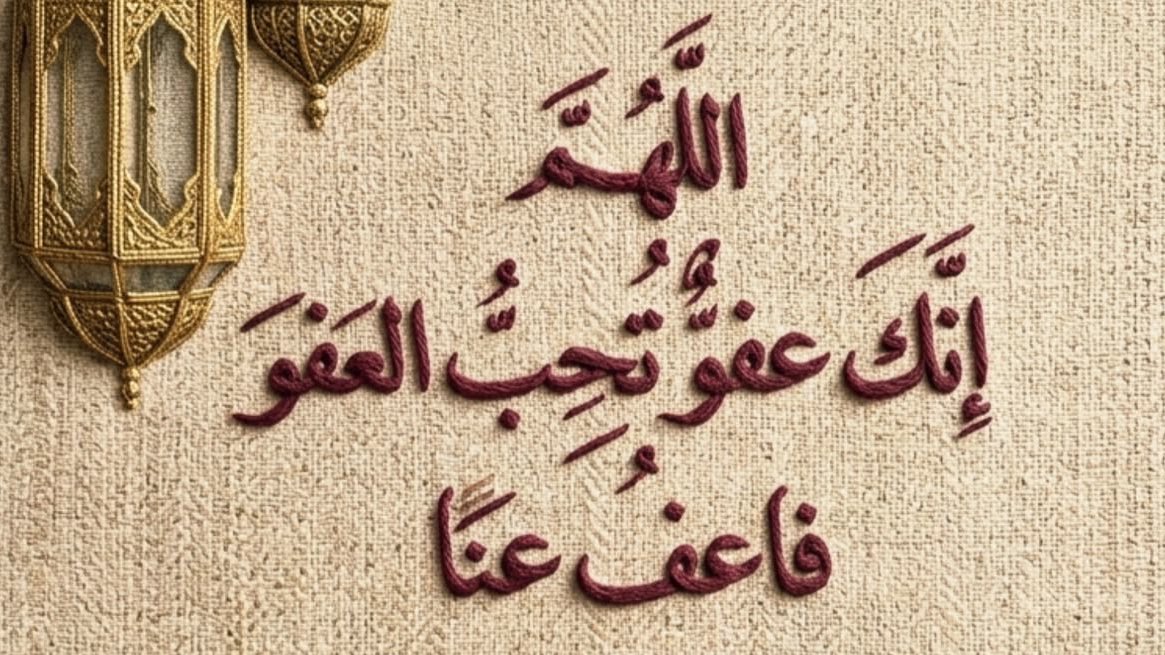 اللَّهُمَّ
إِنَّكَ عفوٌّ تُحِبُّ العَفوَ
فاعفُ عنَاً